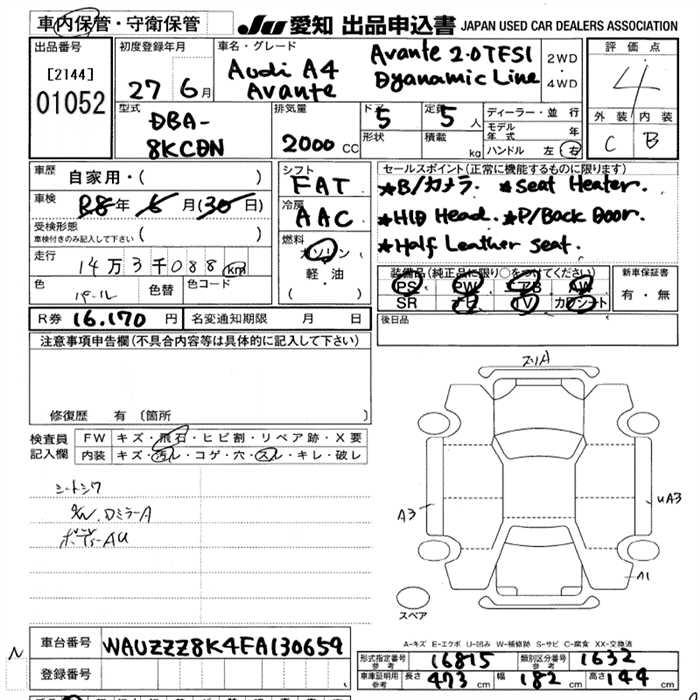 車内保管・守衛保管
JU 愛知 出品申込書 JAPAN USED CAR DEALERS ASSOCIATION
出品番号
[2144]
01052
初度登録年月
27 6月
車名・グレード
Audi A4
Avante
Avante 2.0TFSI
Dyanamic Line
2WD
・
4WD
評価点
4
外装 内装
C B
型式
DBA-
8KCDN
排気量
2000 CC
ドア
5
定員
5 人
形状
積載
kg
ディーラー・並行
モデル年式 年
ハンドル 左 右
車歴
自家用・( )
車検
R8年 6月(30日)
受検形態
車検付きのみ記入して下さい ( )
走行
14万3千088 km
色
パール
色替
色コード
シフト
FAT
冷房
AAC
燃料
ガソリン
軽・油
( )
セールスポイント(正常に機能するものに限ります)
★B/カメラ. ★Seat Heater.
★HID Head. ★P/Back Door.
★Half Leather Seat.
装備品(純正品に限り○をつけてください)
PS PW エアB AW
SR ナビ TV カワシート
新車保証書
有・無
R券 16.170 円
名変通知期限 月 日
後日品
注意事項申告欄(不具合内容等は具体的に記入して下さい)
修復歴 有 〔箇所 〕
検査員
記入欄
FW キズ・飛石・ヒビ割・リペア跡・X要
内装 キズ・汚レ・コゲ・穴・スレ・キレ・破レ
シートシワ
DミラーA
ボディーAU
スリA
A3
UA3
A1
スペア
A-キズ E-エクボ U-凹み W-補修跡 S-サビ C-腐食 XX-交換済
車台番号
WAUZZZ8K4FA130659
登録番号
形式指定番号
参考
16815
類別区分番号
参考
1632
車庫証明用
参考
長さ 473 cm 幅 182 cm 高さ 144 cm